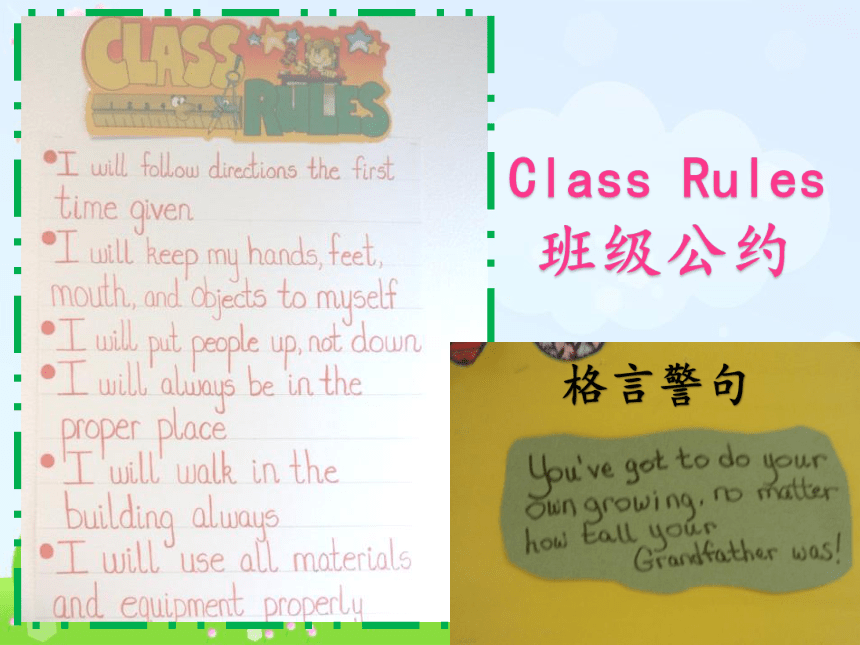 CLASS
RULES
I will follow directions the first
time given
I will keep my hands, feet,
mouth, and objects to myself
I will put people up, not down
I will always be in the
proper place
I will walk in the
building always
I will use all materials
and equipment properly
Class Rules
班级公约
格言警句
You've got to do your
own growing, no matter
how tall your
Grandfather was!